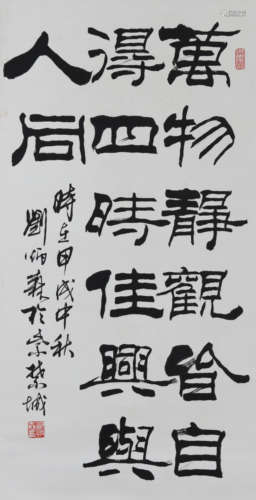 萬物靜觀皆自
得四時佳興與
人同
時在甲戌中秋
劉炳森於紫禁城